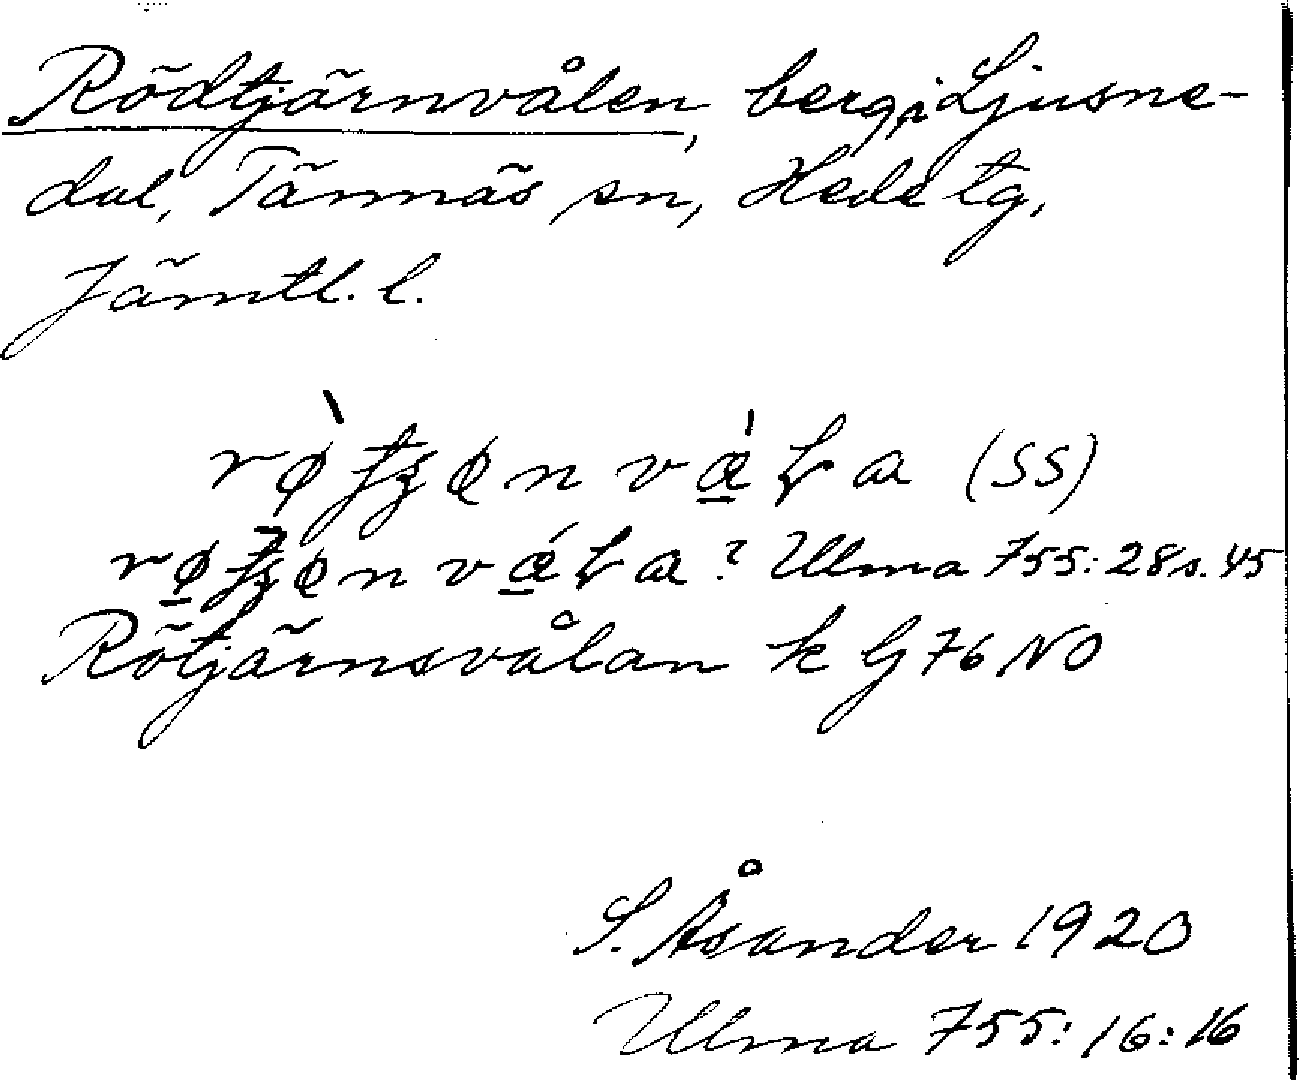 Rödtjärnvålen, berg i Ljusne-
dal, Tännäs sn, Hede tg,
Jämtl. l.
(SS)
? Ulma 755:28 s. 45
Rötjärnsvålan k G 76 NO
S. Åsander 1920
Ulma 755:16:16